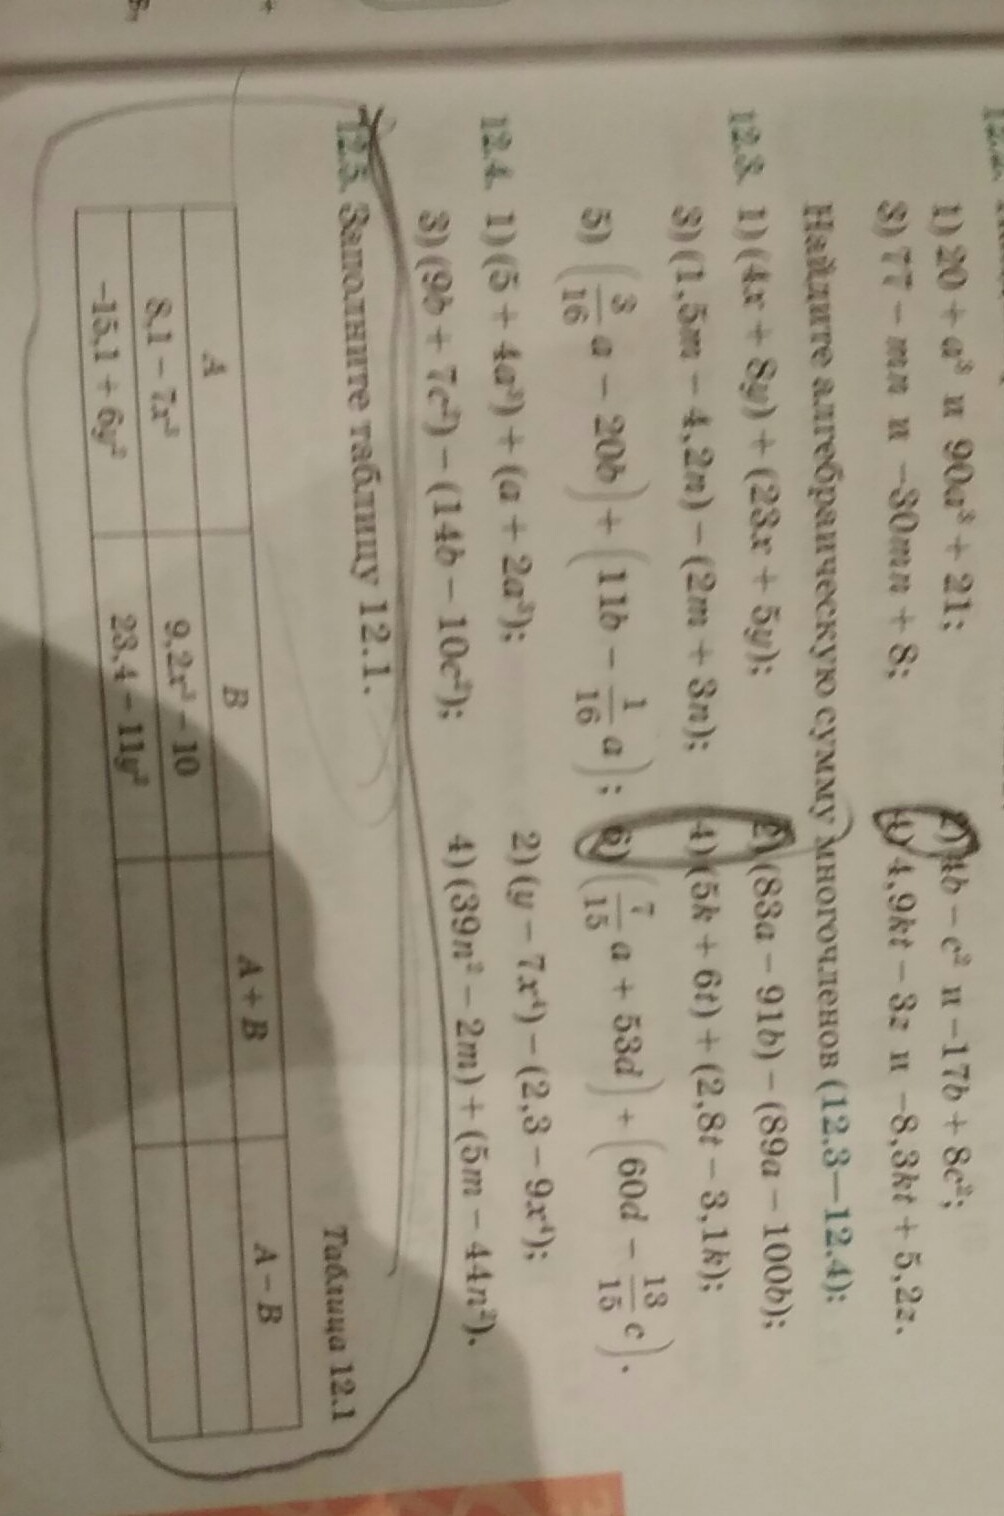 1) 20 + a³ и 90a³ + 21;
2) 4b − c² и −17b + 8c²;
3) 77 − mn и −30mn + 8;
4) 4,9kt − 3z и −8,3kt + 5,2z.
Найдите алгебраическую сумму многочленов (12.3—12.4):
12.3. 1) (4x + 8y) + (23x + 5y);
2) (83a − 91b) − (89a − 100b);
3) (1,5m − 4,2n) − (2m + 3n);
4) (5k + 6t) + (2,8t − 3,1k);
5) (3/16 a − 20b) + (11b − 1/16 a);
6) (7/15 a + 53d) + (60d − 13/15 c).
12.4. 1) (5 + 4a³) + (a + 2a³);
2) (y − 7x⁴) − (2,3 − 9x⁴);
3) (9b + 7c²) − (14b − 10c²);
4) (39n² − 2m) + (5m − 44n²).
12.5. Заполните таблицу 12.1.
Таблица 12.1
A B A + B A − B
8,1 − 7x³ 9,2x³ − 10
−15,1 + 6y² 23,4 − 11y²